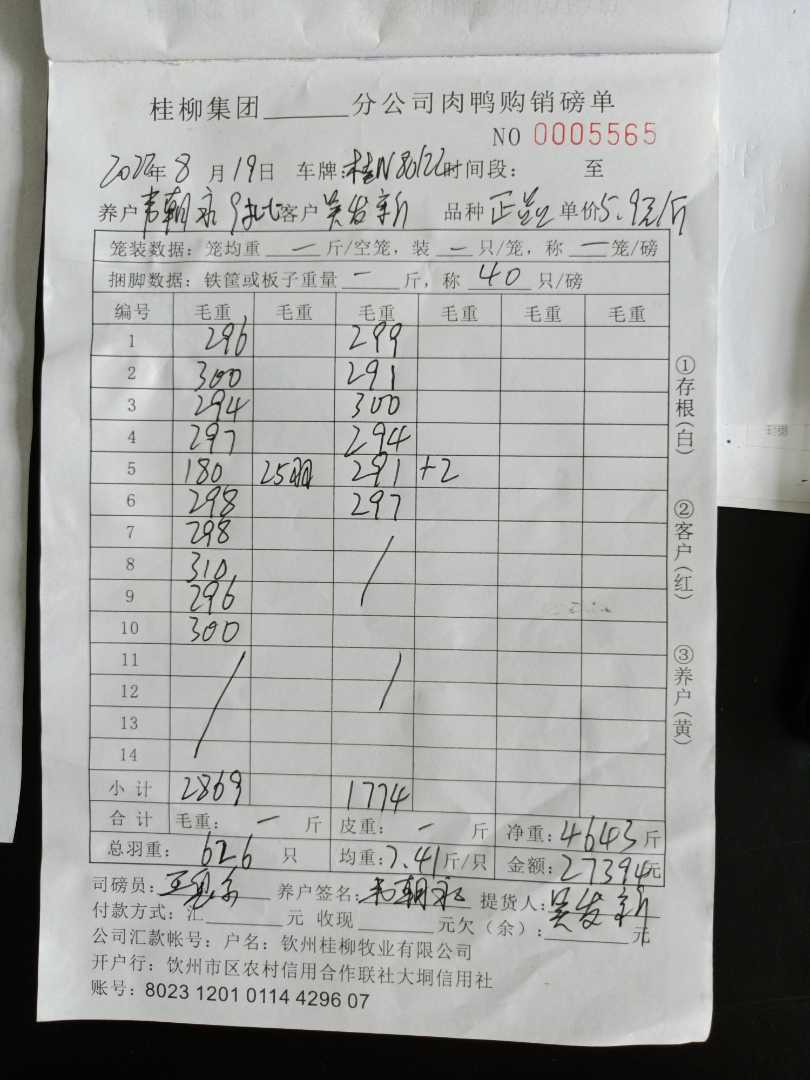 桂柳集团______分公司肉鸭购销磅单
NO 0005565
2022年8月19日 车牌:桂N80122时间段: 至
养户韦朝永 客户吴发新 品种 单价5.9元/斤
笼装数据:笼均重 — 斤/空笼,装 — 只/笼,称 — 笼/磅
捆脚数据:铁筐或板子重量 — 斤,称 40 只/磅
编号 毛重 毛重 毛重 毛重 毛重 毛重
1 296 299
2 300 291
3 294 300
4 297 294
5 180 25羽 291 +2
6 298 297
7 298
8 310
9 296
10 300
11
12
13
14
小计 2869 1774
合计 毛重: — 斤 皮重: — 斤 净重:4643斤
总羽重: 626 只 均重:7.41斤/只 金额:27394元
司磅员: 养户签名:韦朝永 提货人:吴发新
付款方式:汇______元 收现______元欠(余):______元
公司汇款帐号:户名:钦州桂柳牧业有限公司
开户行:钦州市区农村信用合作联社大垌信用社
账号:8023 1201 0114 4296 07
①存根(白)
②客户(红)
③养户(黄)